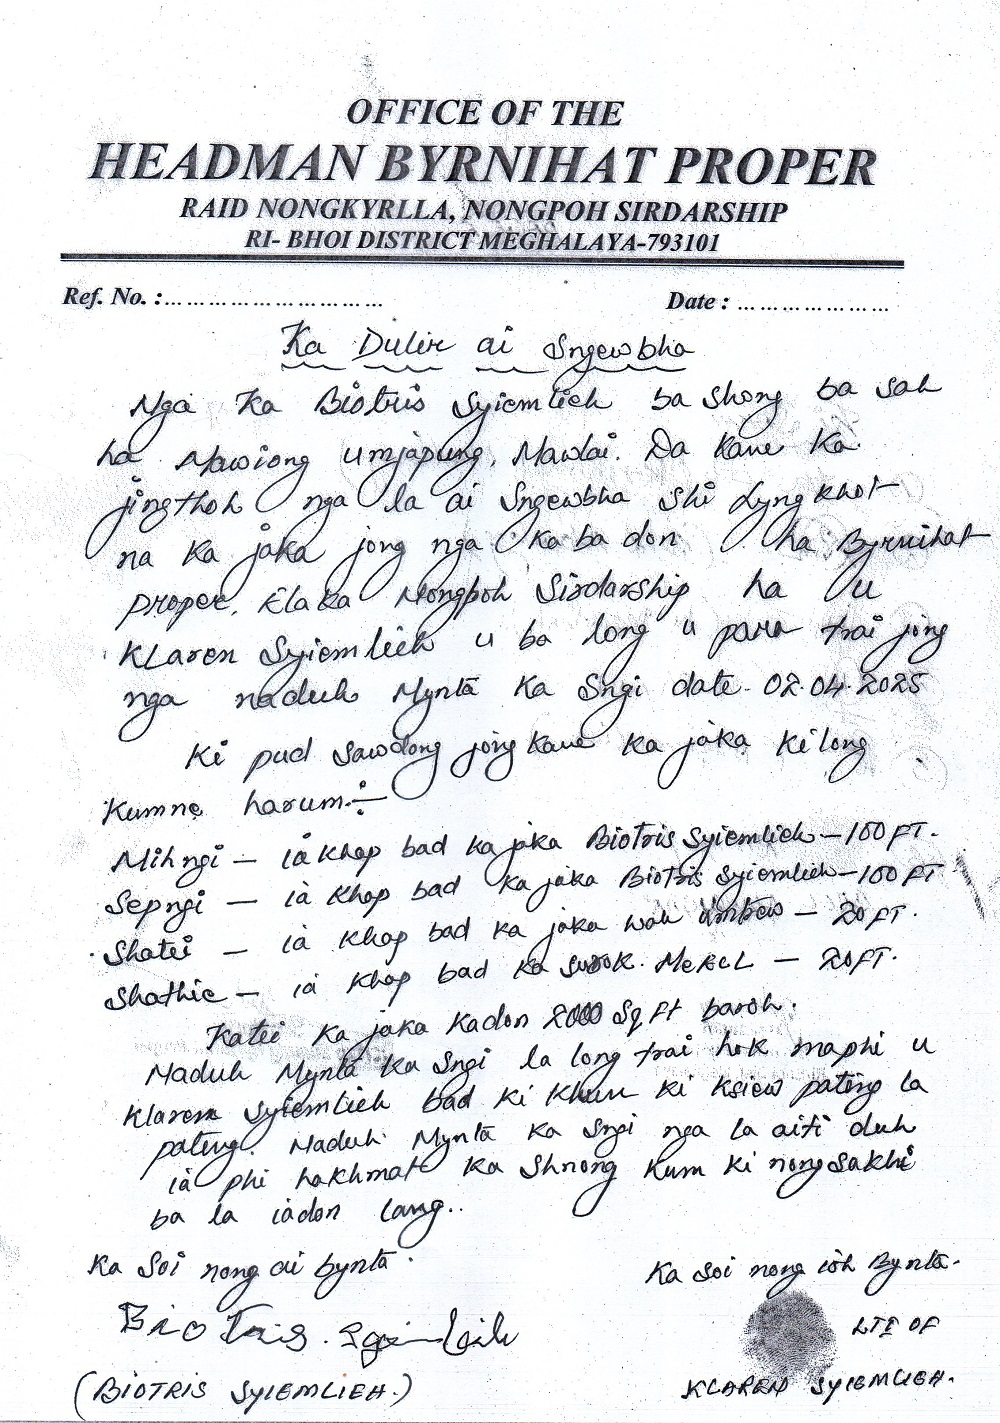 OFFICE OF THE
HEADMAN BYRNIHAT PROPER
RAID NONGKYRLLA, NONGPOH SIRDARSHIP
RI- BHOI DISTRICT MEGHALAYA-793101
Ref. No. :.............................. Date : .....................
Ka Dulir ai Sngewbha
Nga Ka Biotris Syiemlieh ba shong ba sah
ha Mawiong umjapung, Mawlai. Da Kane Ka
jingthoh nga la ai Sngewbha shi Lyngkhot
na Ka jaka jong nga Ka ba don ha Byrnihat
proper, Elaka Nongpoh Sirdarship ha U
KLaren Syiemlieh u ba long u para trai jong
nga naduh Mynta Ka Sngi date. 02.04.2025
Ki pud sawdong jong Kane Ka jaka Ki long
Kumne harum:-
Mihngi – ia Khap bad Ka jaka Biotris Syiemlieh – 100 FT.
Sepngi – ia Khap bad Ka jaka Biotris Syiemlieh – 100 FT
Shatei – ia Khap bad Ka jaka wah Umtrew – 20 FT.
Shathie – ia Khap bad Ka surok MeECL – 20FT.
Katei Ka jaka Kadon 2000 Sq Ft baroh.
Naduh Mynta Ka Sngi la long trai hok maphi u
Klaren Syiemlieh bad Ki Khun Ki Ksiew pateng la
pateng. Naduh Mynta Ka Sngi nga la aiti duh
ia phi hakhmat Ka Shnong Kum Ki nongsakhi
ba la iadon lang..
Ka Soi nong ai bynta. Ka Soi nong ioh Bynta.
Biotris. Syiemlieh LTI OF
(BIOTRIS SYIEMLIEH.) KLAREN SYIEMLIEH.